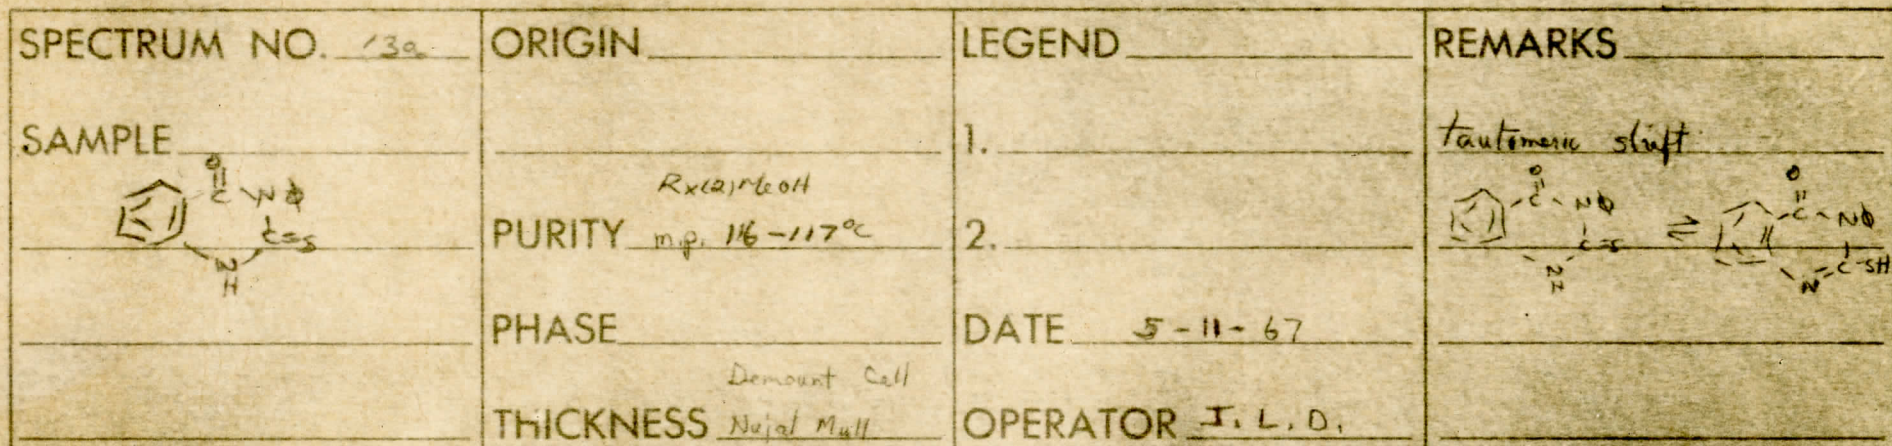 SPECTRUM NO. 13a
SAMPLE
O
C
NΦ
C=S
N
H
ORIGIN
Rx(2) MeOH
PURITY m.p. 116-117°C
PHASE
Demount Cell
THICKNESS Nujol Mull
LEGEND
1.
2.
DATE 5-11-67
OPERATOR J. L. D.
REMARKS
tautomeric shift
O O
C - NΦ C - NΦ
C=S ⇌ C-SH
N N
H